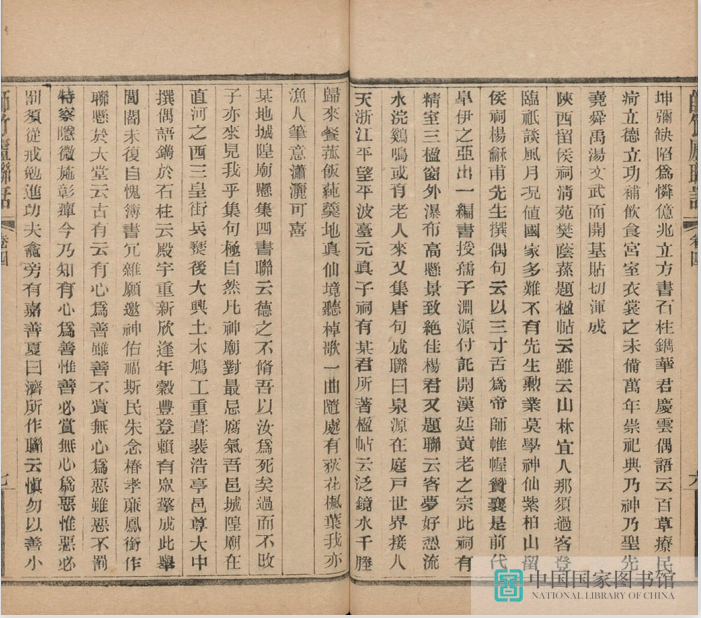 坤彌缺陷爲憐億兆立方書石柱鐫華君慶雲偶語云百草療民
疴立德立功補飲食宮室衣裳之未備萬年崇祀典乃神乃聖先
堯舜禹湯文武而開基貼切渾成
陝西留侯祠清苑樊蔭蓀題楹帖云雖云山林宜人那須過客登
臨祇談風月况値國家多難不有先生勳業莫學神仙紫柏山留
侯祠楊穌甫先生撰偶句云以三寸舌爲帝師帷幄贊襄是前代
臯伊之亞出一編書授孺子淵源付託開漢廷黃老之宗此祠有
精室三楹窗外瀑布高懸景致絶佳楊君又題聯云客夢好憑流
水浣鷄鳴或有老人來又集唐句成聯曰泉源在庭戶世界接人
天浙江平望平波臺元眞子祠有某君所著楹帖云泛鏡水千塍
歸來餐菰飯蒓羹地眞仙境聽棹歌一曲隨處有荻花楓葉我亦
漁人筆意瀟灑可喜
某地城隍廟懸集四書聯云德之不脩吾以汝爲死矣過而不改
子亦來見我乎集句極自然凡神廟對最忌腐氣吾邑城隍廟在
直河之西三皇街兵燹後大興土木鳩工重葺裴浩亭邑尊大中
撰偶語鐫於石柱云殿宇重新欣逢年穀豐登賴有衆擎成此舉
閭閻未復自愧簿書冗雜願邀神佑福斯民朱念椿孝亷鳳銜作
聯懸於大堂云古有云有心爲善雖善不賞無心爲惡雖惡不罰
特察隱微施彰癉今乃知有心爲善惟善必賞無心爲惡惟惡必
罰須從戒勉進功夫龕旁有嘉善夏曰濟所作聯云愼勿以善小
師竹廬聯話
卷四
七
中国国家图书馆
NATIONAL LIBRARY OF CHINA